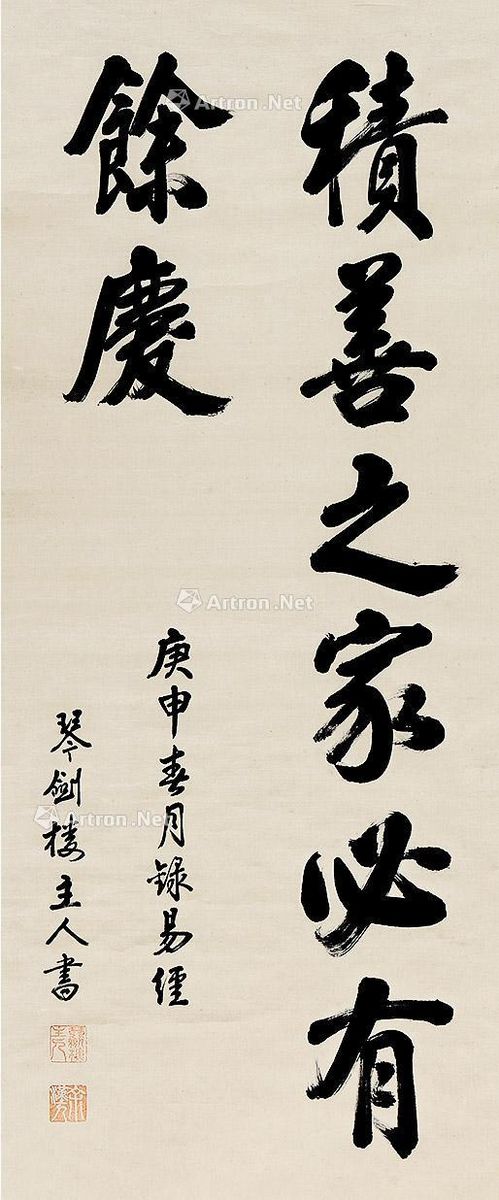 積善之家必有
餘慶
庚申春月録易經
琴劍楼主人書
Artron.Net
Artron.Net
Artron.Net